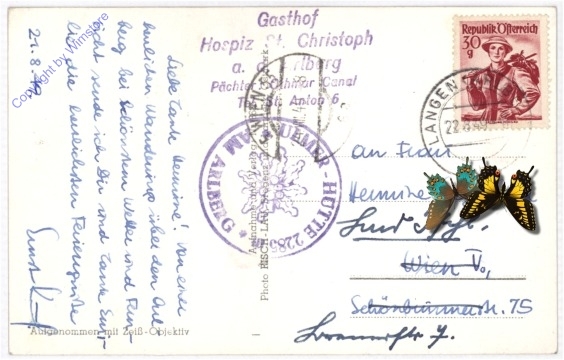 Gasthof
Hospiz St. Christoph
a. Arlberg
Pächter: Othmar Canal
Tel. St. Anton 6
Republik Österreich
30
g
LANGEN
22.8
ULMER-HÜTTE 2285
AM ARLBERG
21.8.
Liebe Tante Hermine! Von einer
herrlichen Wanderung über den Arl
berg bei schönstem Wetter und Fern-
sicht sende ich Dir und Tante
die herzlichsten Feriengrüße
Ernst
Aufgenommen mit Zeiß-Objektiv
Photo RISCH-LAU
An Frau
Hermine
Wien V.,
Schönbrunnerstr. 75
Copyright by Wimstore